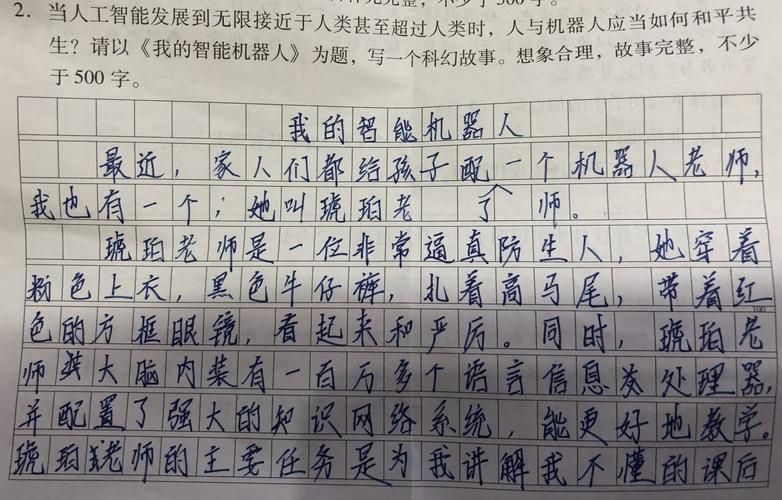 2. 当人工智能发展到无限接近于人类甚至超过人类时，人与机器人应当如何和平共
生？请以《我的智能机器人》为题，写一个科幻故事。想象合理，故事完整，不少
于500字。
我的智能机器人
最近，家人们都给孩子配了一个机器人老师，
我也有一个，她叫琥珀老师。
琥珀老师是一位非常逼真防生人，她穿着
粉色上衣，黑色牛仔裤，扎着高马尾，带着红
色的方框眼镜，看起来和严厉。同时，琥珀老
师大脑内装有一百万多个语言信息处理器，
并配置了强大的知识网络系统，能更好地教学。
琥珀老师的主要任务是为我讲解我不懂的课后